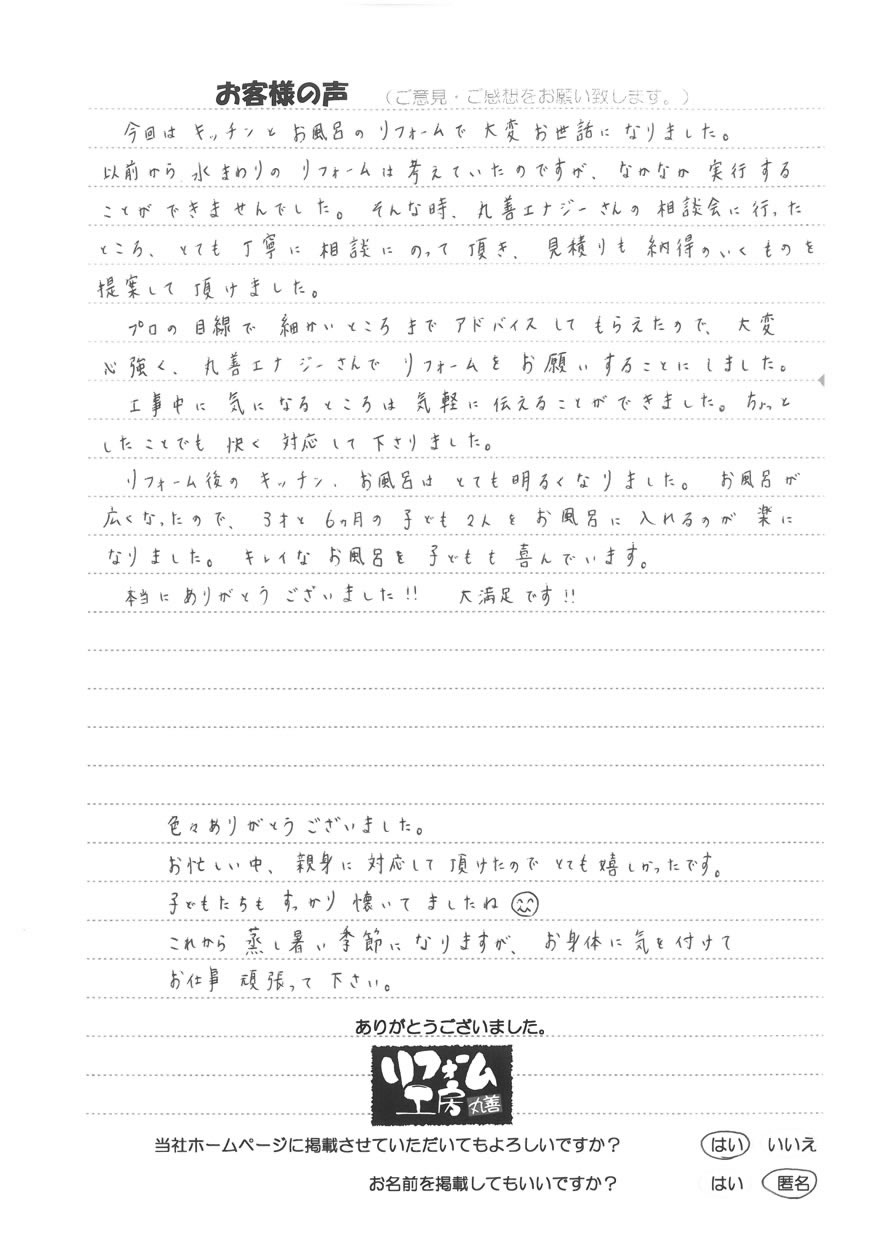 お客様の声 (ご意見・ご感想をお願い致します。)
今回は キッチンと お風呂の リフォームで 大変 お世話に なりました。
以前から 水まわりの リフォームは 考えていたのですが、なかなか 実行する
ことができませんでした。そんな時、丸善エナジーさんの 相談会に 行った
ところ、とても 丁寧に 相談に のって 頂き、見積りも 納得のいくものを
提案して 頂けました。
プロの 目線で 細かいところまで アドバイスしてもらえたので、大変
心強く、丸善エナジーさんで リフォームを お願いすることに しました。
工事中に 気になるところは 気軽に 伝えることができました。ちょっと
したことでも 快く 対応して 下さりました。
リフォーム後の キッチン、お風呂は とても 明るくなりました。お風呂が
広くなったので、3才と 6ヶ月の 子ども 2人を お風呂に 入れるのが 楽に
なりました。キレイな お風呂を 子どもも 喜んでいます。
本当に ありがとう ございました!! 大満足です!!
色々ありがとうございました。
お忙しい中、親身に 対応して 頂けたので とても 嬉しかったです。
子どもたちも すっかり 懐いてましたね
これから 蒸し暑い 季節に なりますが、お身体に 気を付けて
お仕事 頑張って 下さい。
ありがとうございました。
リフォーム
工房 丸善
当社ホームページに掲載させていただいてもよろしいですか? はい いいえ
お名前を掲載してもいいですか? はい 匿名